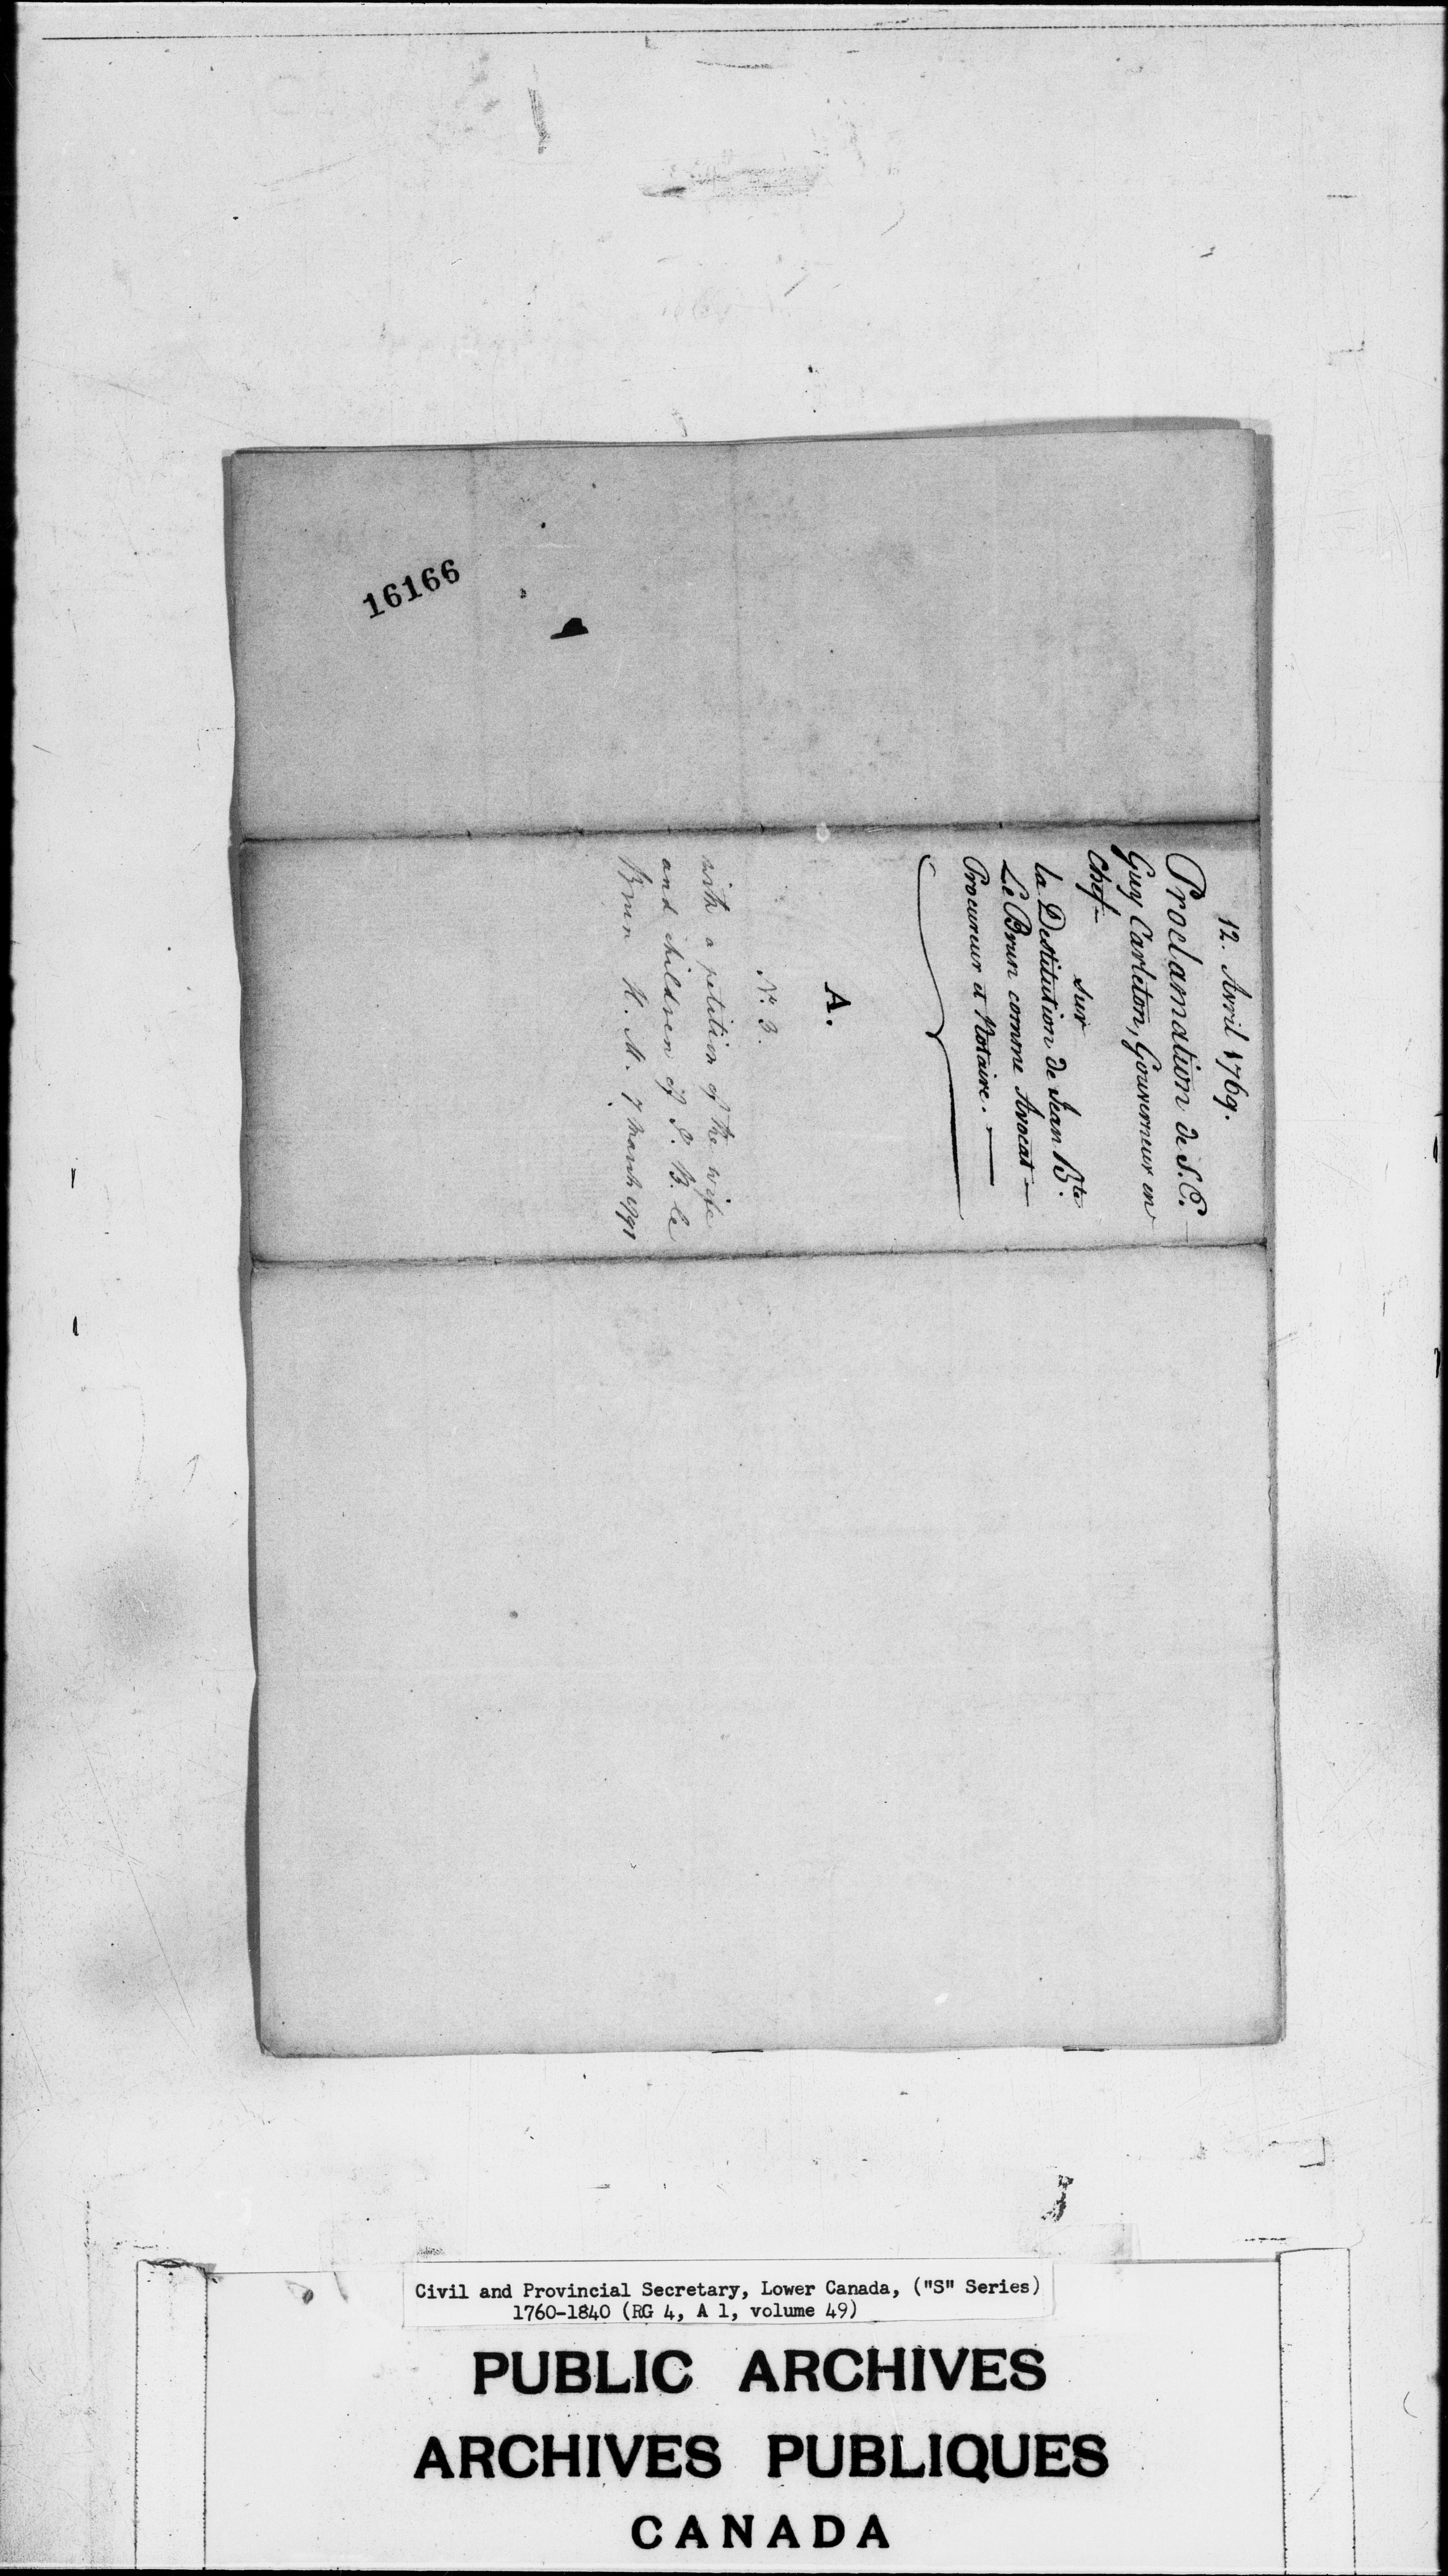 16166
12. Avril 1769.
Proclamation de S.E.
Guy Carleton, Gouverneur en
Chef—
sur
la Destitution de Jean B.te
Le Brun comme Avocat—
Procureur et Notaire.—
A.
No. 3.
with a petition of the wife
and children of J. B. Le
Brun H. M. 7 March 1791
Civil and Provincial Secretary, Lower Canada, ("S" Series)
1760-1840 (RG 4, A 1, volume 49)
PUBLIC ARCHIVES
ARCHIVES PUBLIQUES
CANADA